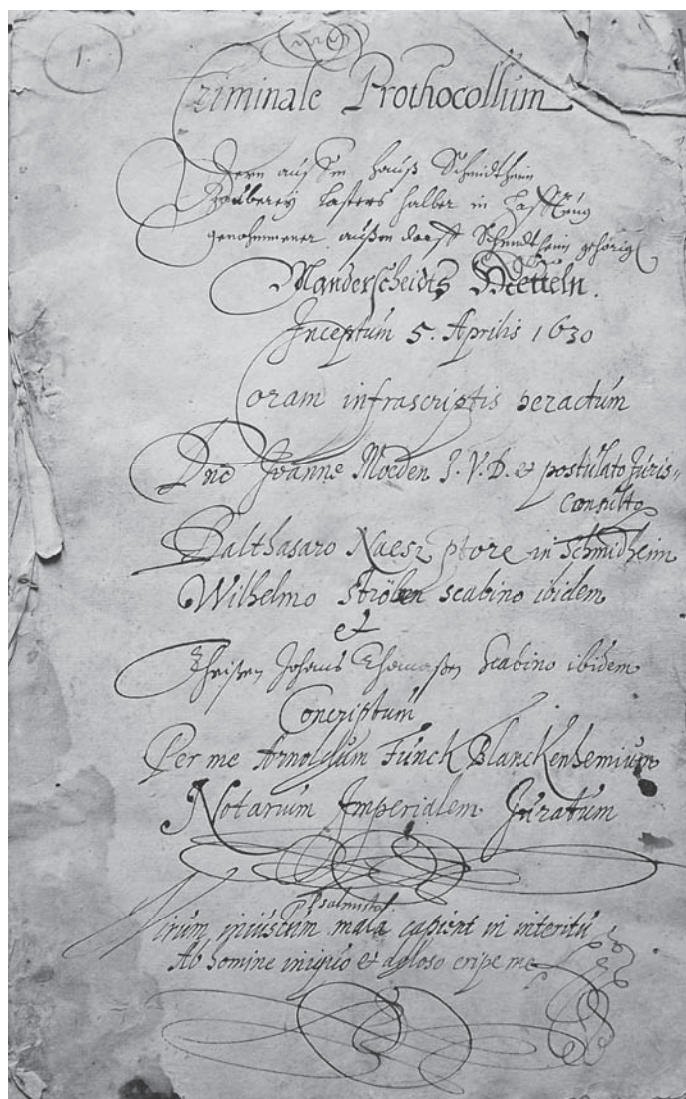 1.
Criminale Prothocollum
Dern auß dem hauß Schmidtheim
Zauberey lasters halber in hafftung
genohmmener außm dorff Schmidtheim gehörig
Manderscheidts Ketteln.
Inceptum 5. Aprilis 1630
Coram infrascriptis peractum
Dno Joanne Moeden J. V. D. et postulato Juris-
Consulto
Balthasaro Naesz ptore in Schmidheim
Wilhelmo Ströben scabino ibidem
et
Theißen Johans Thomaßen Scabino ibidem
Conscriptum
Per me Arnoldum Funck Blanckenhemium
Notarium Imperialem Juratum
Psalmista
Virum iniustum mala capient in interitu
Ab homine iniquo et doloso eripe me